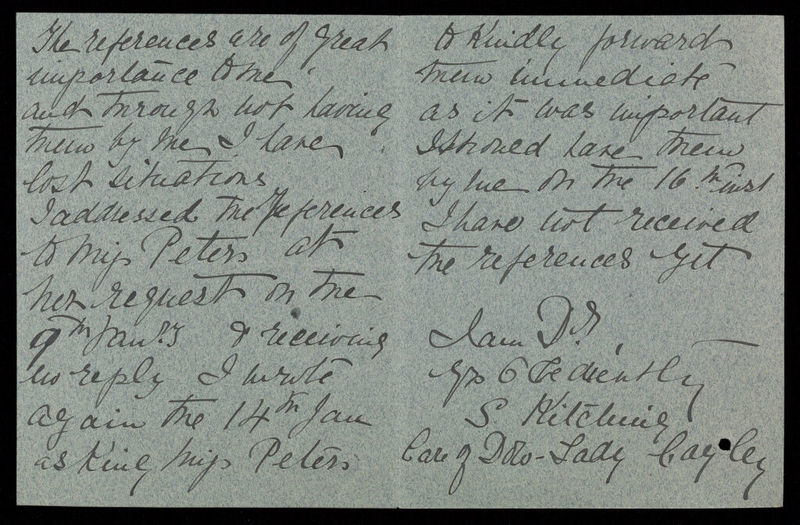 The references are of great
importance to me
and through not having
them by me I have
lost situations
I addressed the references
to Miss Peters at
her request on the
9th Jan.ry & receiving
no reply I wrote
again the 14th Jan
asking Miss Peters
to kindly forward
them immediate
as it was important
I should have them
by me on the 16th inst
I have not received
the references yet
I am Dr S,
yrs Obediently
S Kitching
Care of Dow- Lady Cayley